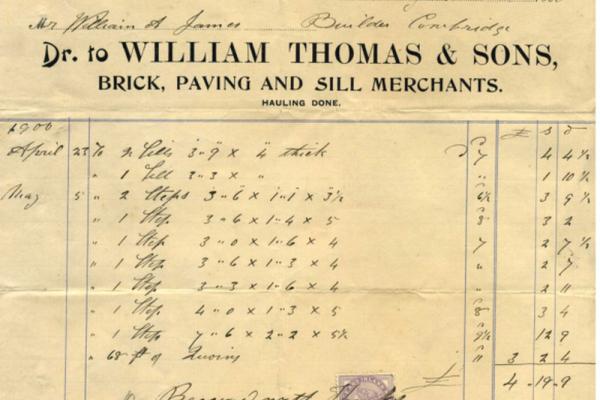 Mr William A James Builder Cowbridge
Dr. to WILLIAM THOMAS & SONS,
BRICK, PAVING AND SILL MERCHANTS.
HAULING DONE.
1900 £ s d
April 23 To 2 Sills 3"9 x 4 thick 7 4 4½
" 1 Sill 3"3 x " " 1 10½
May 5 " 2 Steps 3"6 x 1"1 x 3½ 6½ 3 9½
" 1 Step 3"6 x 1"4 x 5 8 3 2
" 1 Step 3"0 x 1"6 x 4 7 2 7½
" 1 Step 3"6 x 1"3 x 4 " 2 7
" 1 Step 3"3 x 1"6 x 4 " 2 11
" 1 Step 4"0 x 1"3 x 5 8 3 4
" 1 Step 7"6 x 2"2 x 5½ 9½ 12 9
" 68 ft of Quoins 11 3 2 4
£ 4-19-9